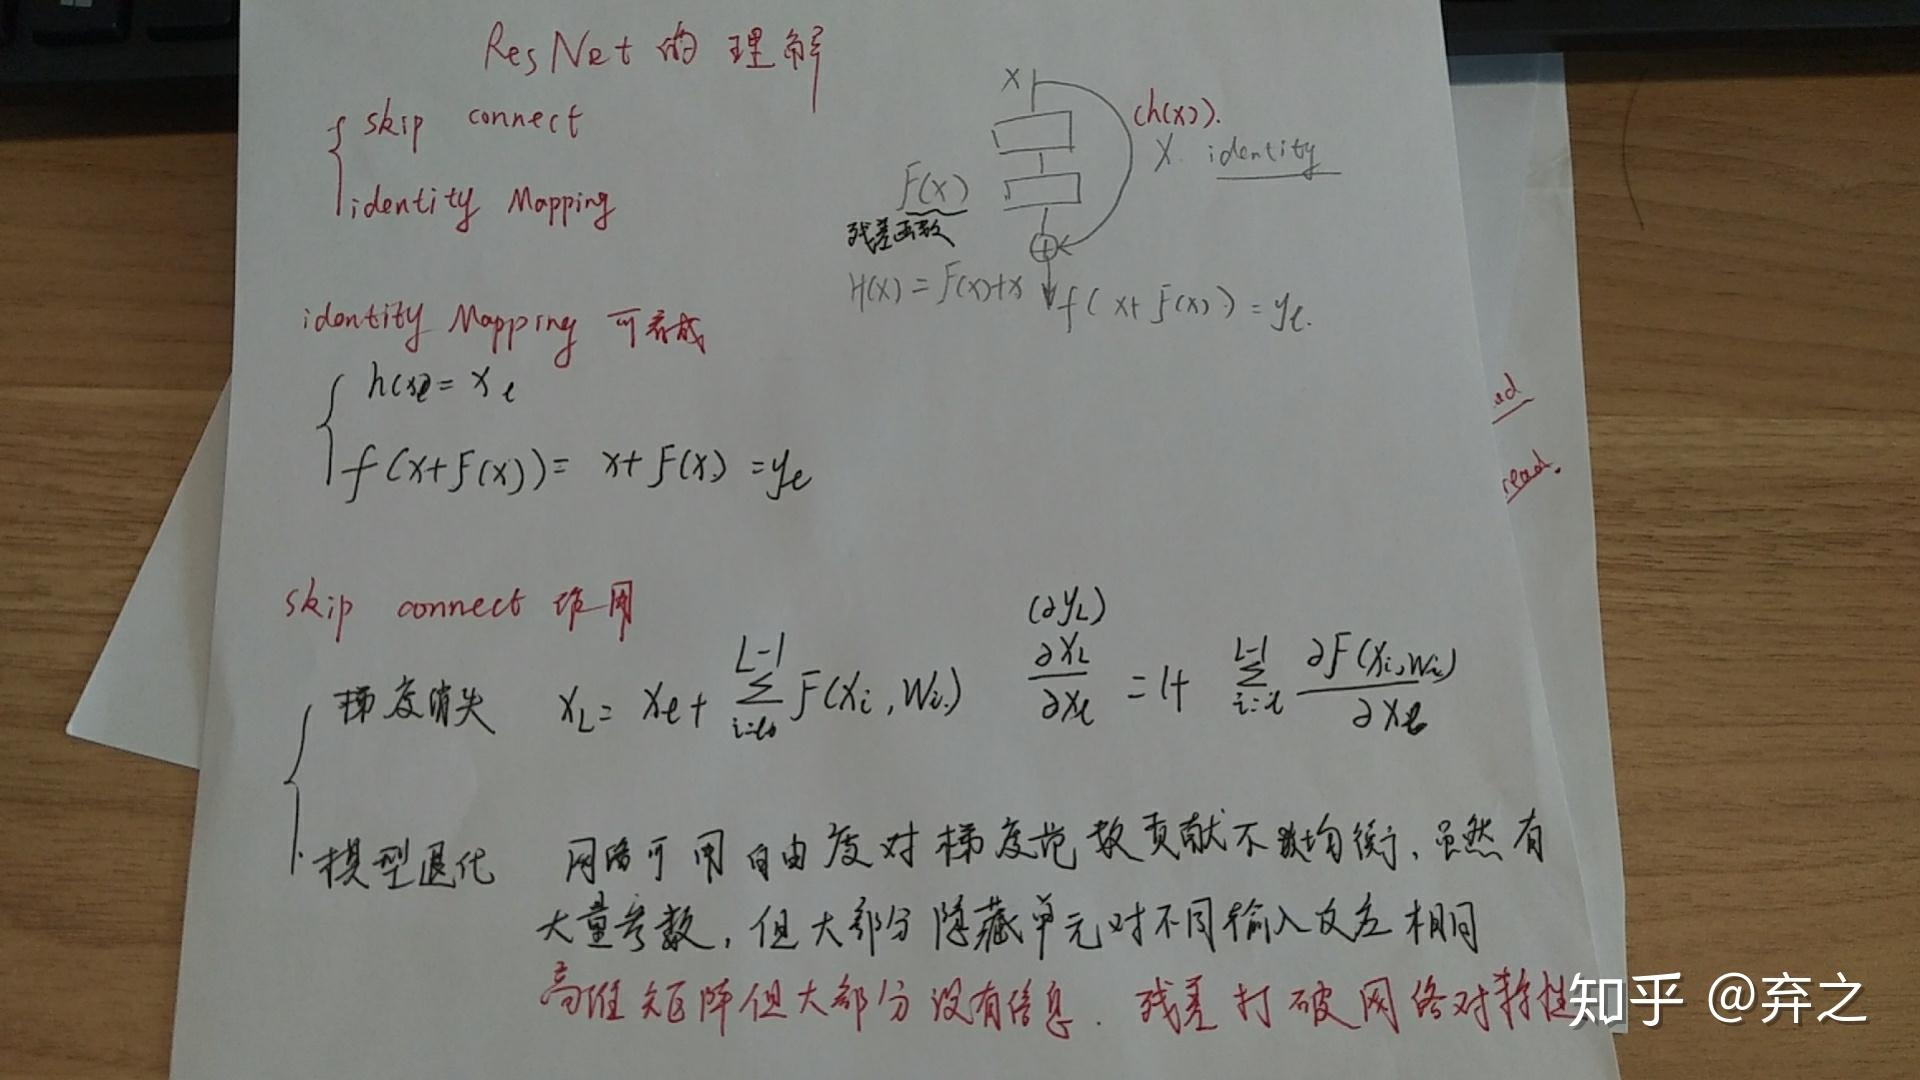 ResNet 的理解
skip connect
identity Mapping
x
(h(x)).
X. identity
F(x)
残差函数
H(x) = F(x)+x
f( x+ F(x) ) = yℓ.
identity Mapping 可看成
h(xℓ) = xℓ
f(x+F(x)) = x+F(x) = yℓ
skip connect 作用
梯度消失 x_L = xℓ + ∑_{i=ℓ}^{L-1} F(xi, Wi) (∂y_L) ∂x_L/∂xℓ = 1+ ∑_{i=ℓ}^{L-1} ∂F(xi, wi)/∂xℓ
模型退化 网络可用自由度对梯度范数贡献不均衡, 虽然有
大量参数, 但大部分隐藏单元对不同输入反应相同
高维矩阵但大部分没有信息. 残差打破网络对称性
ad
read.
知乎 @弃之